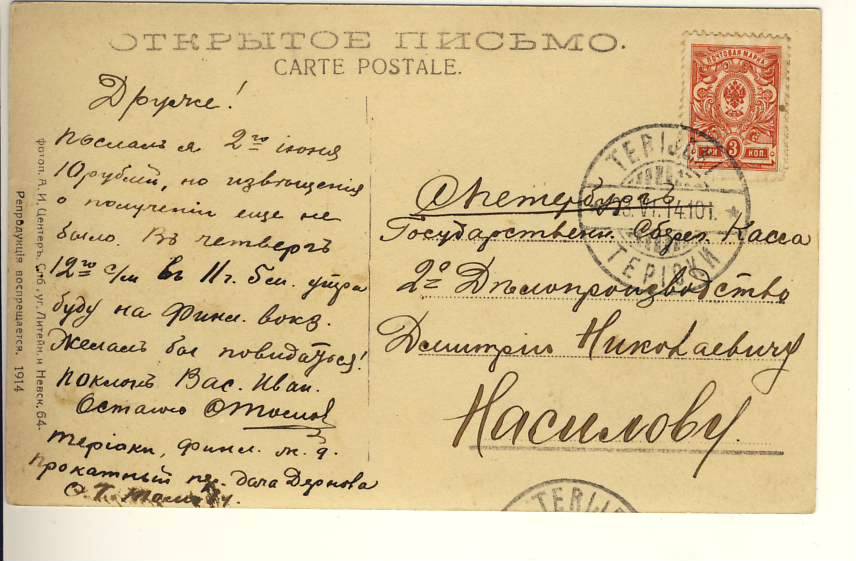 ОТКРЫТОЕ ПИСЬМО.
CARTE POSTALE.
Друже!
Послалъ я 2го іюня
10 рублей, но извѣщенія
о полученіи еще не
было. Въ четвергъ
12го с/м въ 11ч. 5м. утра
буду на Финл. вокз.
Желалъ бы повидаться!
Поклонъ Вас. Иван.
Остаюсь
Теріоки, Финл. ж. д.
Прокатный пр. дача Дернова
ПОЧТОВАЯ МАРКА
ТРИ 3 КОП.
TERIJOKI
VI.14.10
ТЕРІОКИ
С.Петербургъ
Государственн. Сберег. Касса
2ое Дѣлопроизводство
Дмитрію Николаевичу
Насилову.
TERIJO
Фотоп. А. И. Центеръ, Спб., уг. Литейн. и Невск. 64.
Репродукція воспрещается. 1914